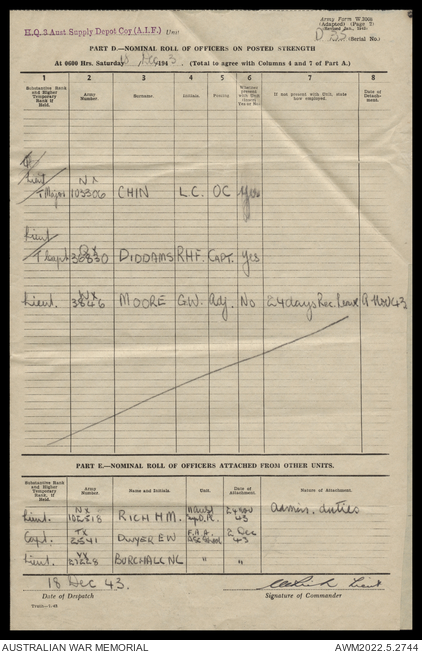 H.Q. 3 Aust Supply Depot Coy (A.I.F.) Unit
Army Form W 3008
(Adapted) (Page 7)
(Serial No.)
PART D.—NOMINAL ROLL OF OFFICERS ON POSTED STRENGTH
At 0600 Hrs. Saturday 18 Dec 1943. (Total to agree with Columns 4 and 7 of Part A.)
1 2 3 4 5 6 7 8
Substantive Rank and Higher Temporary Rank if Held.
Army Number.
Surname.
Initials.
Posting
Whether present with Unit Yes or No
If not present with Unit, state how employed.
Date of Detachment.
Lieut
T/Major NX 103306 CHIN L.C. OC Yes
Lieut
T/Capt DIDDAMS R.H.F. CAPT. Yes
Lieut. 3846 MOORE G.W. Adj. No 24 days Rec. Leave Nov 43
PART E.—NOMINAL ROLL OF OFFICERS ATTACHED FROM OTHER UNITS.
Substantive Rank and Higher Temporary Rank, if Held.
Army Number.
Name and Initials.
Unit.
Date of Attachment.
Nature of Attachment.
Lieut. NX RICH H M. 24 Nov 43 admin. duties
Capt. TX 2541 DWYER E W 2 Dec 43
Lieut. VX BURCHALL N L " "
18 Dec 43.
Lieut
Date of Despatch
Signature of Commander
AUSTRALIAN WAR MEMORIAL
AWM2022.5.2744